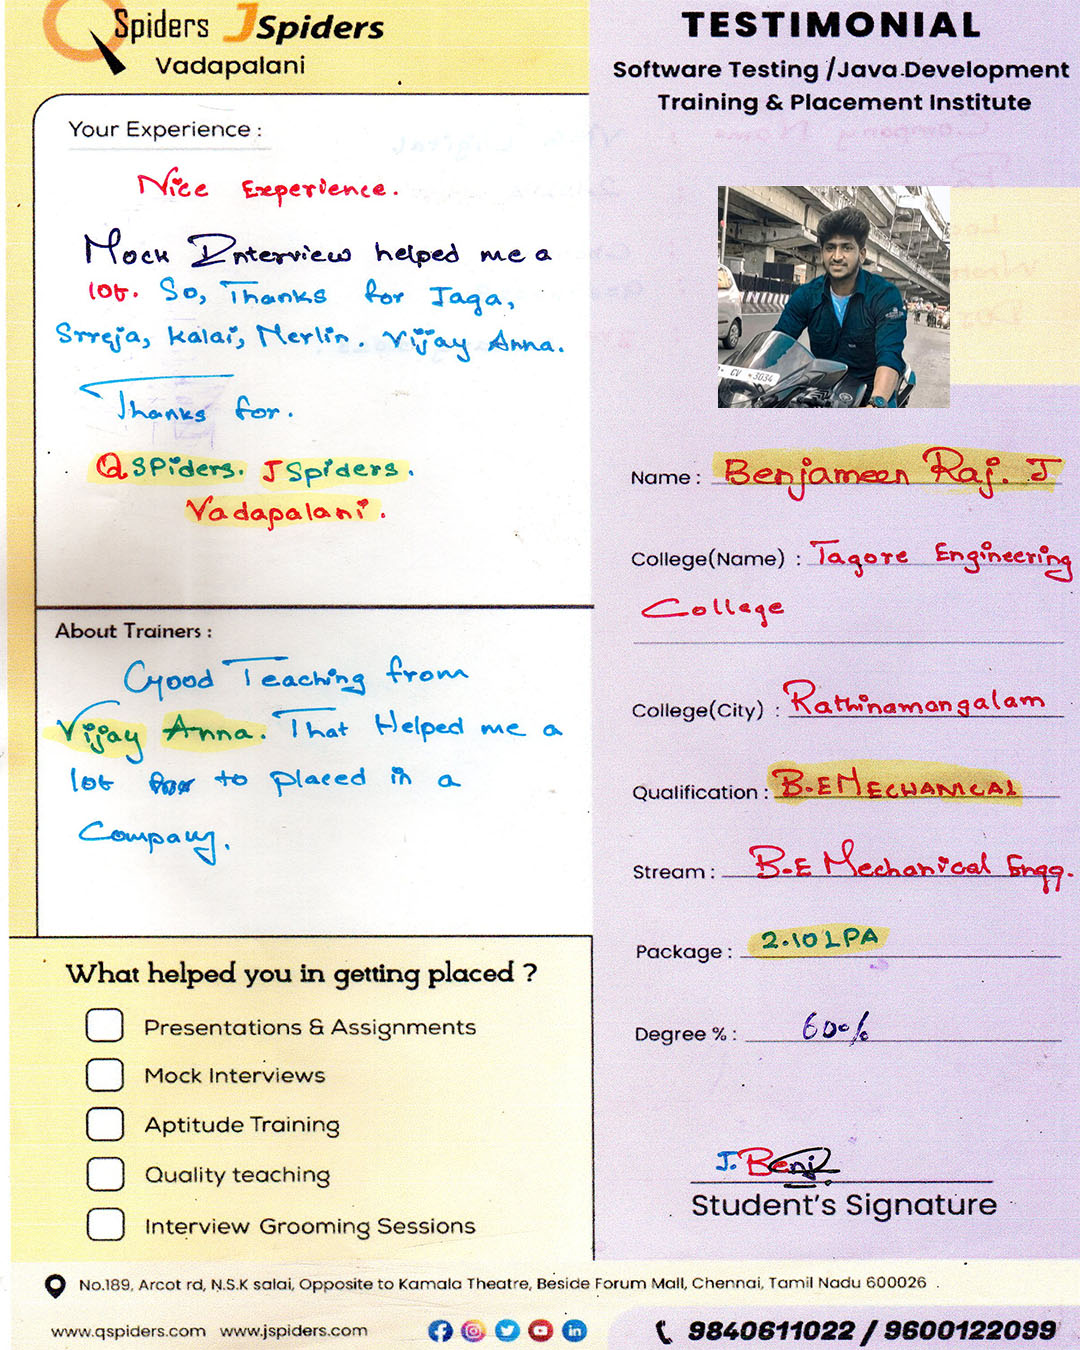 QSpiders JSpiders
Vadapalani
TESTIMONIAL
Software Testing /Java Development
Training & Placement Institute
Your Experience :
Nice Experience.
Mock Interview helped me a
lot. So, Thanks for Jaga,
Srreja, Kalai, Merlin. Vijay Anna.
Thanks for.
QSPiders. JSpiders.
Vadapalani.
About Trainers :
Good Teaching from
Vijay Anna. That Helped me a
lot to placed in a
Company.
What helped you in getting placed ?
Presentations & Assignments
Mock Interviews
Aptitude Training
Quality teaching
Interview Grooming Sessions
CV 3034
Name : Benjameen Raj. J
College(Name) : Tagore Engineering
College
College(City) : Rathinamangalam
Qualification : B.E MECHANICAL
Stream : B.E Mechanical Engg.
Package : 2.10 LPA
Degree % : 60%
J. Benj
Student's Signature
No.189, Arcot rd, N.S.K salai, Opposite to Kamala Theatre, Beside Forum Mall, Chennai, Tamil Nadu 600026 .
www.qspiders.com www.jspiders.com
9840611022 / 9600122099